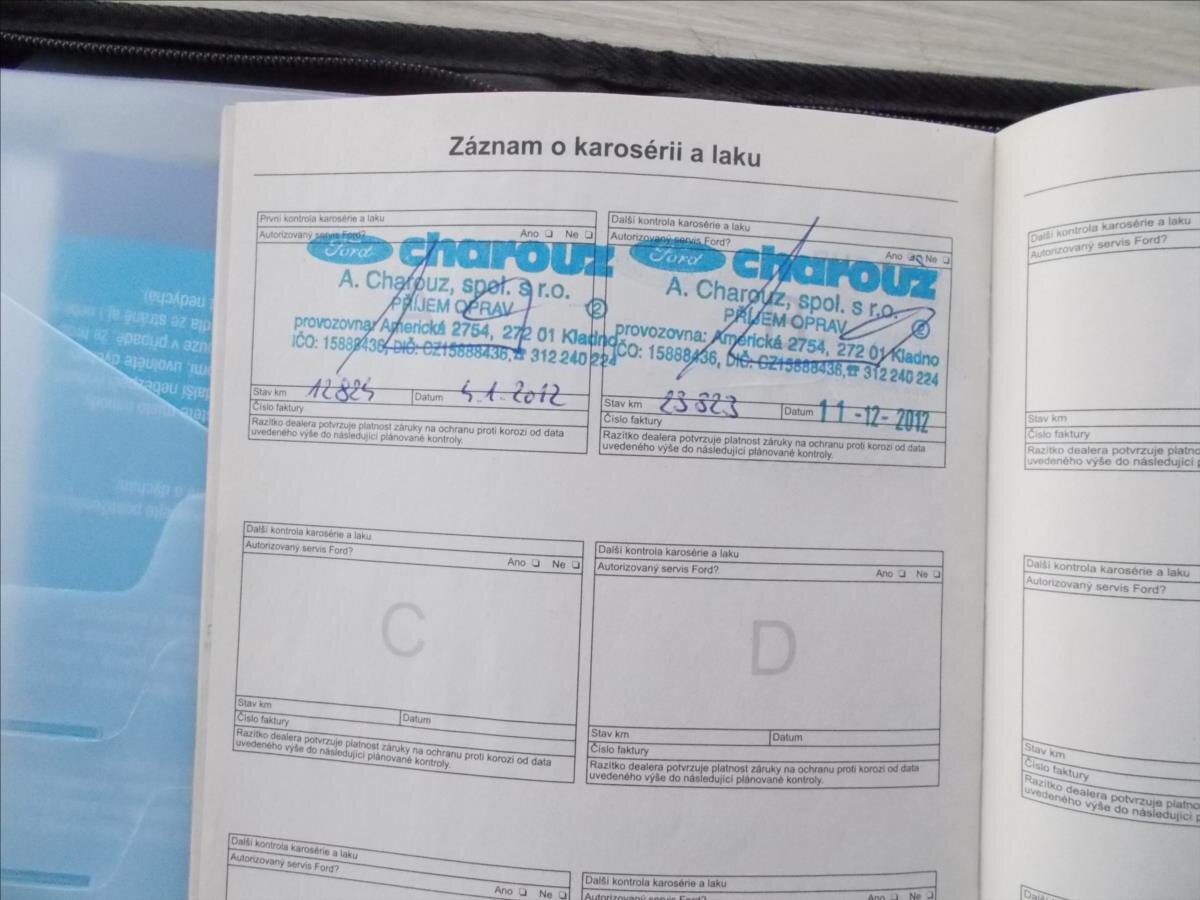 Záznam o karosérii a laku
První kontrola karosérie a laku
Autorizovaný servis Ford?
Ano ❑ Ne ❑
Ford charouz
A. Charouz, spol. s r.o.
PŘÍJEM OPRAV 2
provozovna: Americká 2754, 272 01 Kladno
IČO: 15888436, DIČ: CZ15888436, ☎ 312 240 224
Stav km 12824 Datum 4.1.2012
Číslo faktury
Razítko dealera potvrzuje platnost záruky na ochranu proti korozi od data
uvedeného výše do následující plánované kontroly.
Další kontrola karosérie a laku
Autorizovaný servis Ford?
Ano ❑ Ne ❑
Ford charouz
A. Charouz, spol. s r.o.
PŘÍJEM OPRAV 2
provozovna: Americká 2754, 272 01 Kladno
IČO: 15888436, DIČ: CZ15888436, ☎ 312 240 224
Stav km 23823 Datum 11-12-2012
Číslo faktury
Razítko dealera potvrzuje platnost záruky na ochranu proti korozi od data
uvedeného výše do následující plánované kontroly.
Další kontrola karosérie a laku
Autorizovaný servis Ford?
Ano ❑ Ne ❑
C
Stav km Datum
Číslo faktury
Razítko dealera potvrzuje platnost záruky na ochranu proti korozi od data
uvedeného výše do následující plánované kontroly.
Další kontrola karosérie a laku
Autorizovaný servis Ford?
Ano ❑ Ne ❑
D
Stav km Datum
Číslo faktury
Razítko dealera potvrzuje platnost záruky na ochranu proti korozi od data
uvedeného výše do následující plánované kontroly.
Další kontrola karosérie a laku
Autorizovaný servis Ford?
Ano ❑ Ne ❑
Další kontrola karosérie a laku
Autorizovaný servis Ford?
Ano ❑ Ne ❑
Další kontrola karosérie a laku
Autorizovaný servis Ford?
Stav km
Číslo faktury
Razítko dealera potvrzuje platnost
uvedeného výše do následující
Další kontrola karosérie a laku
Autorizovaný servis Ford?
Stav km
Číslo faktury
Razítko dealera potvrzuje platno
uvedeného výše do následující